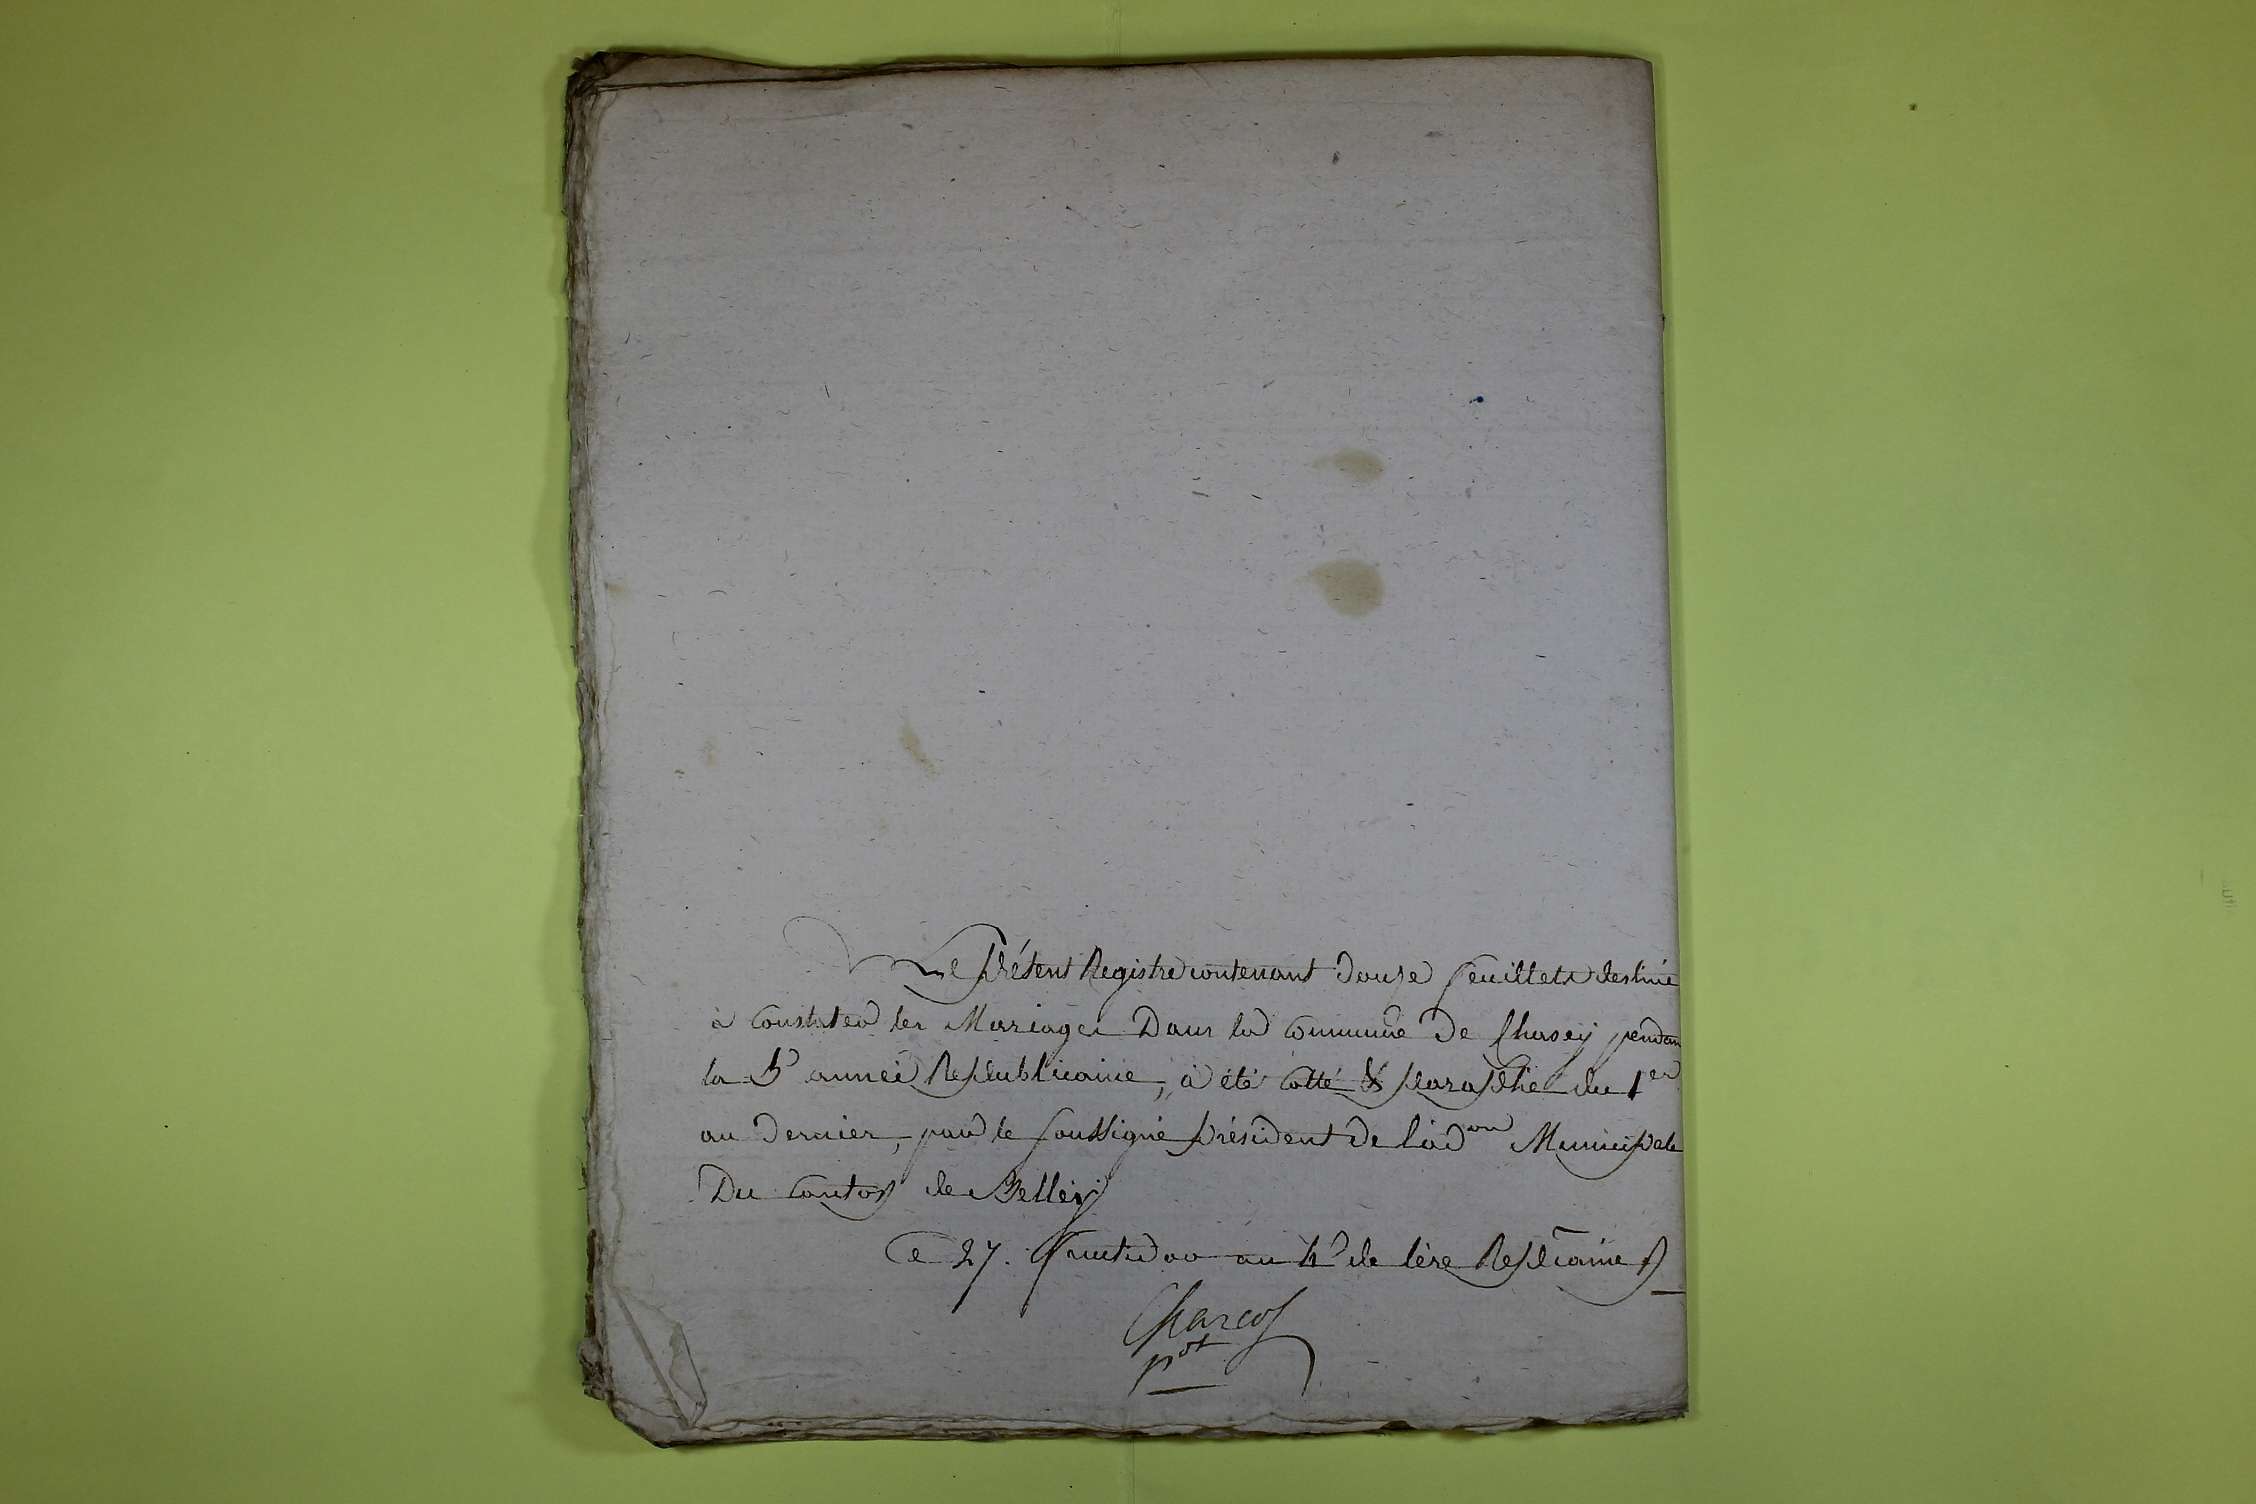 Le Présent Registre contenant douze feuillets destiné
à Constater les Mariages Dans la commune de Chasey pendan
la 5e année Républicaine, à été Cotté & paraphé du 1er
au dernier, par le soussigné président de l'adon Municipale
Du canton de Belley
Ce 27. fructidor an 4e de l'ère Repcaine
Charcot
pdt